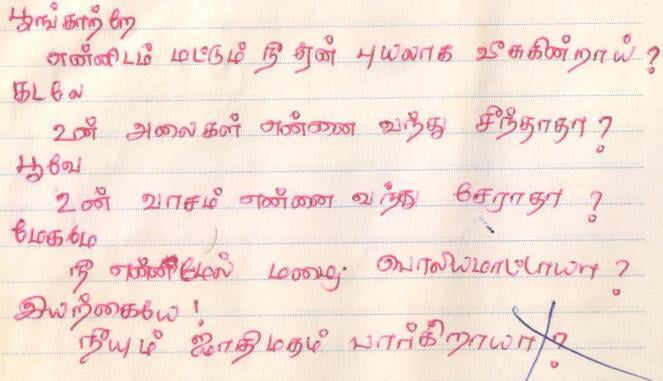 பூங்காற்றே
என்னிடம் மட்டும் நீ ஏன் புயலாக வீசுகின்றாய் ?
கடலே
உன் அலைகள் என்னை வந்து சீந்தாதா ?
பூவே
உன் வாசம் என்னை வந்து சேராதா ?
மேகமே
நீ என்மேல் மழை பொலியமாட்டாயா ?
இயற்கையே !
நீயும் ஜாதிமதம் பார்கிறாயா ?